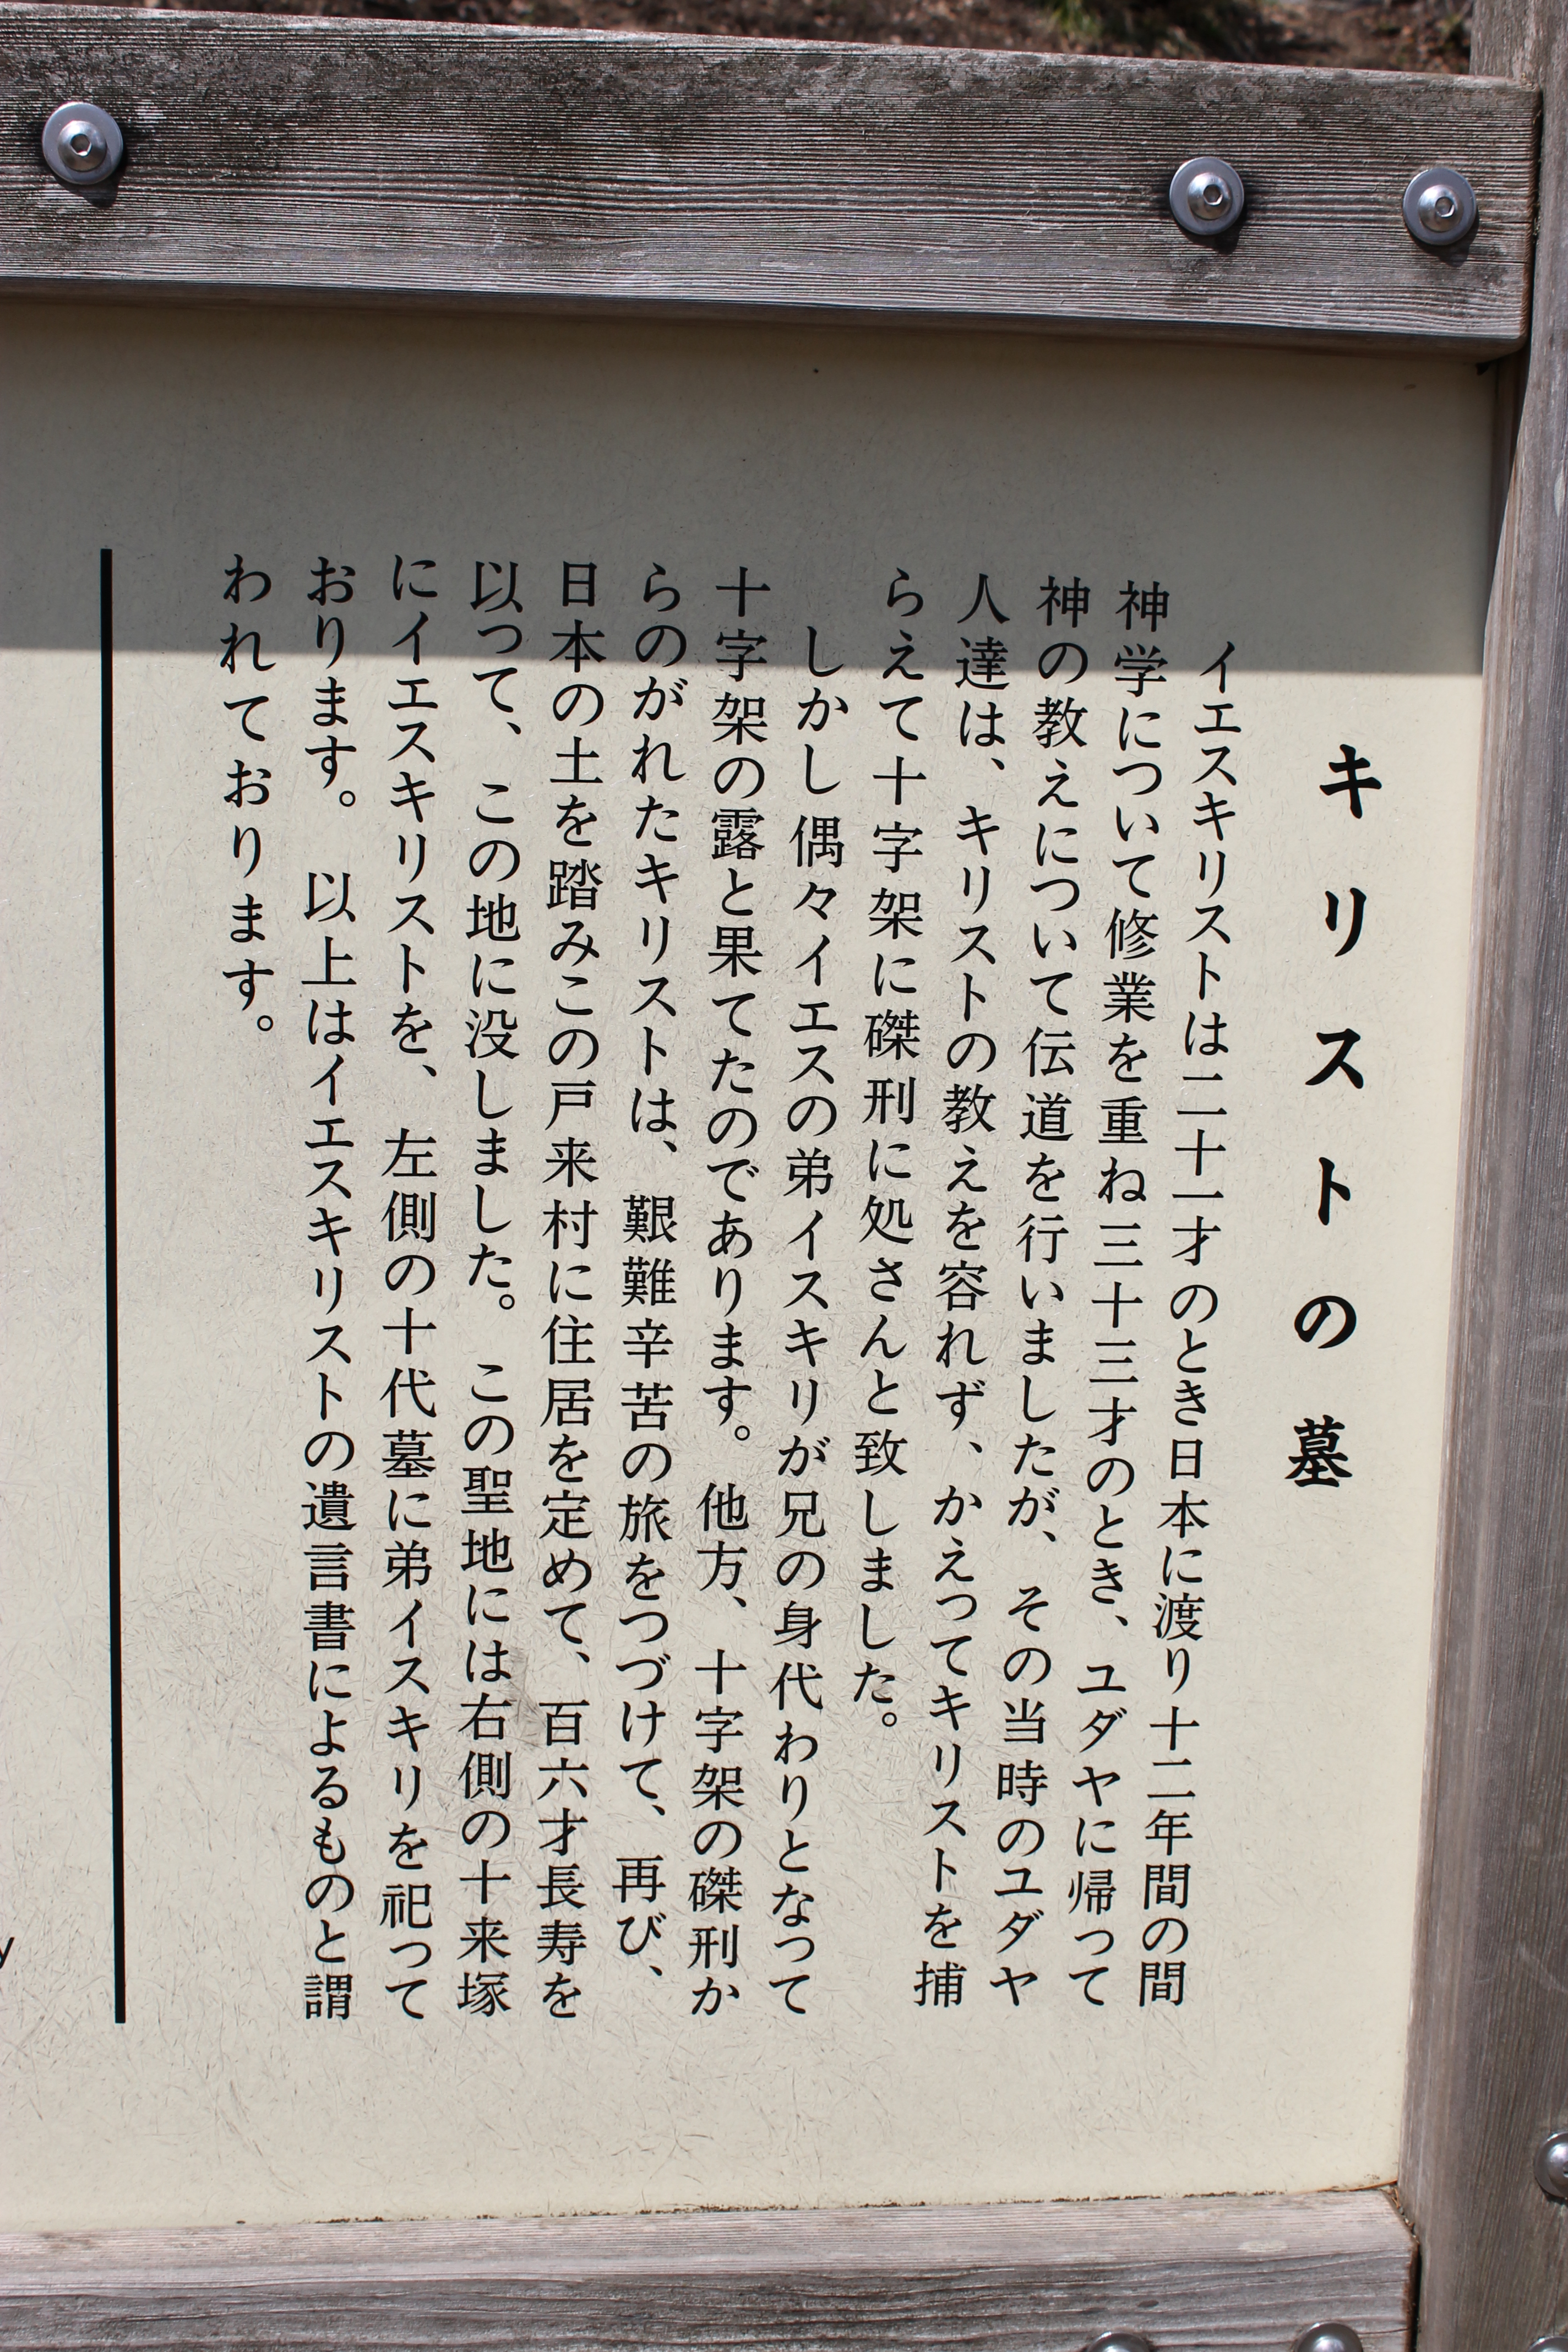 キリストの墓
イエスキリストは二十一才のとき日本に渡り十二年間の間
神学について修業を重ね三十三才のとき、ユダヤに帰って
神の教えについて伝道を行いましたが、その当時のユダヤ
人達は、キリストの教えを容れず、かえってキリストを捕
らえて十字架に磔刑に処さんと致しました。
しかし偶々イエスの弟イスキリが兄の身代わりとなって
十字架の露と果てたのであります。他方、十字架の磔刑か
らのがれたキリストは、艱難辛苦の旅をつづけて、再び、
日本の土を踏みこの戸来村に住居を定めて、百六才長寿を
以って、この地に没しました。この聖地には右側の十来塚
にイエスキリストを、左側の十代墓に弟イスキリを祀って
おります。以上はイエスキリストの遺言書によるものと謂
われております。
y